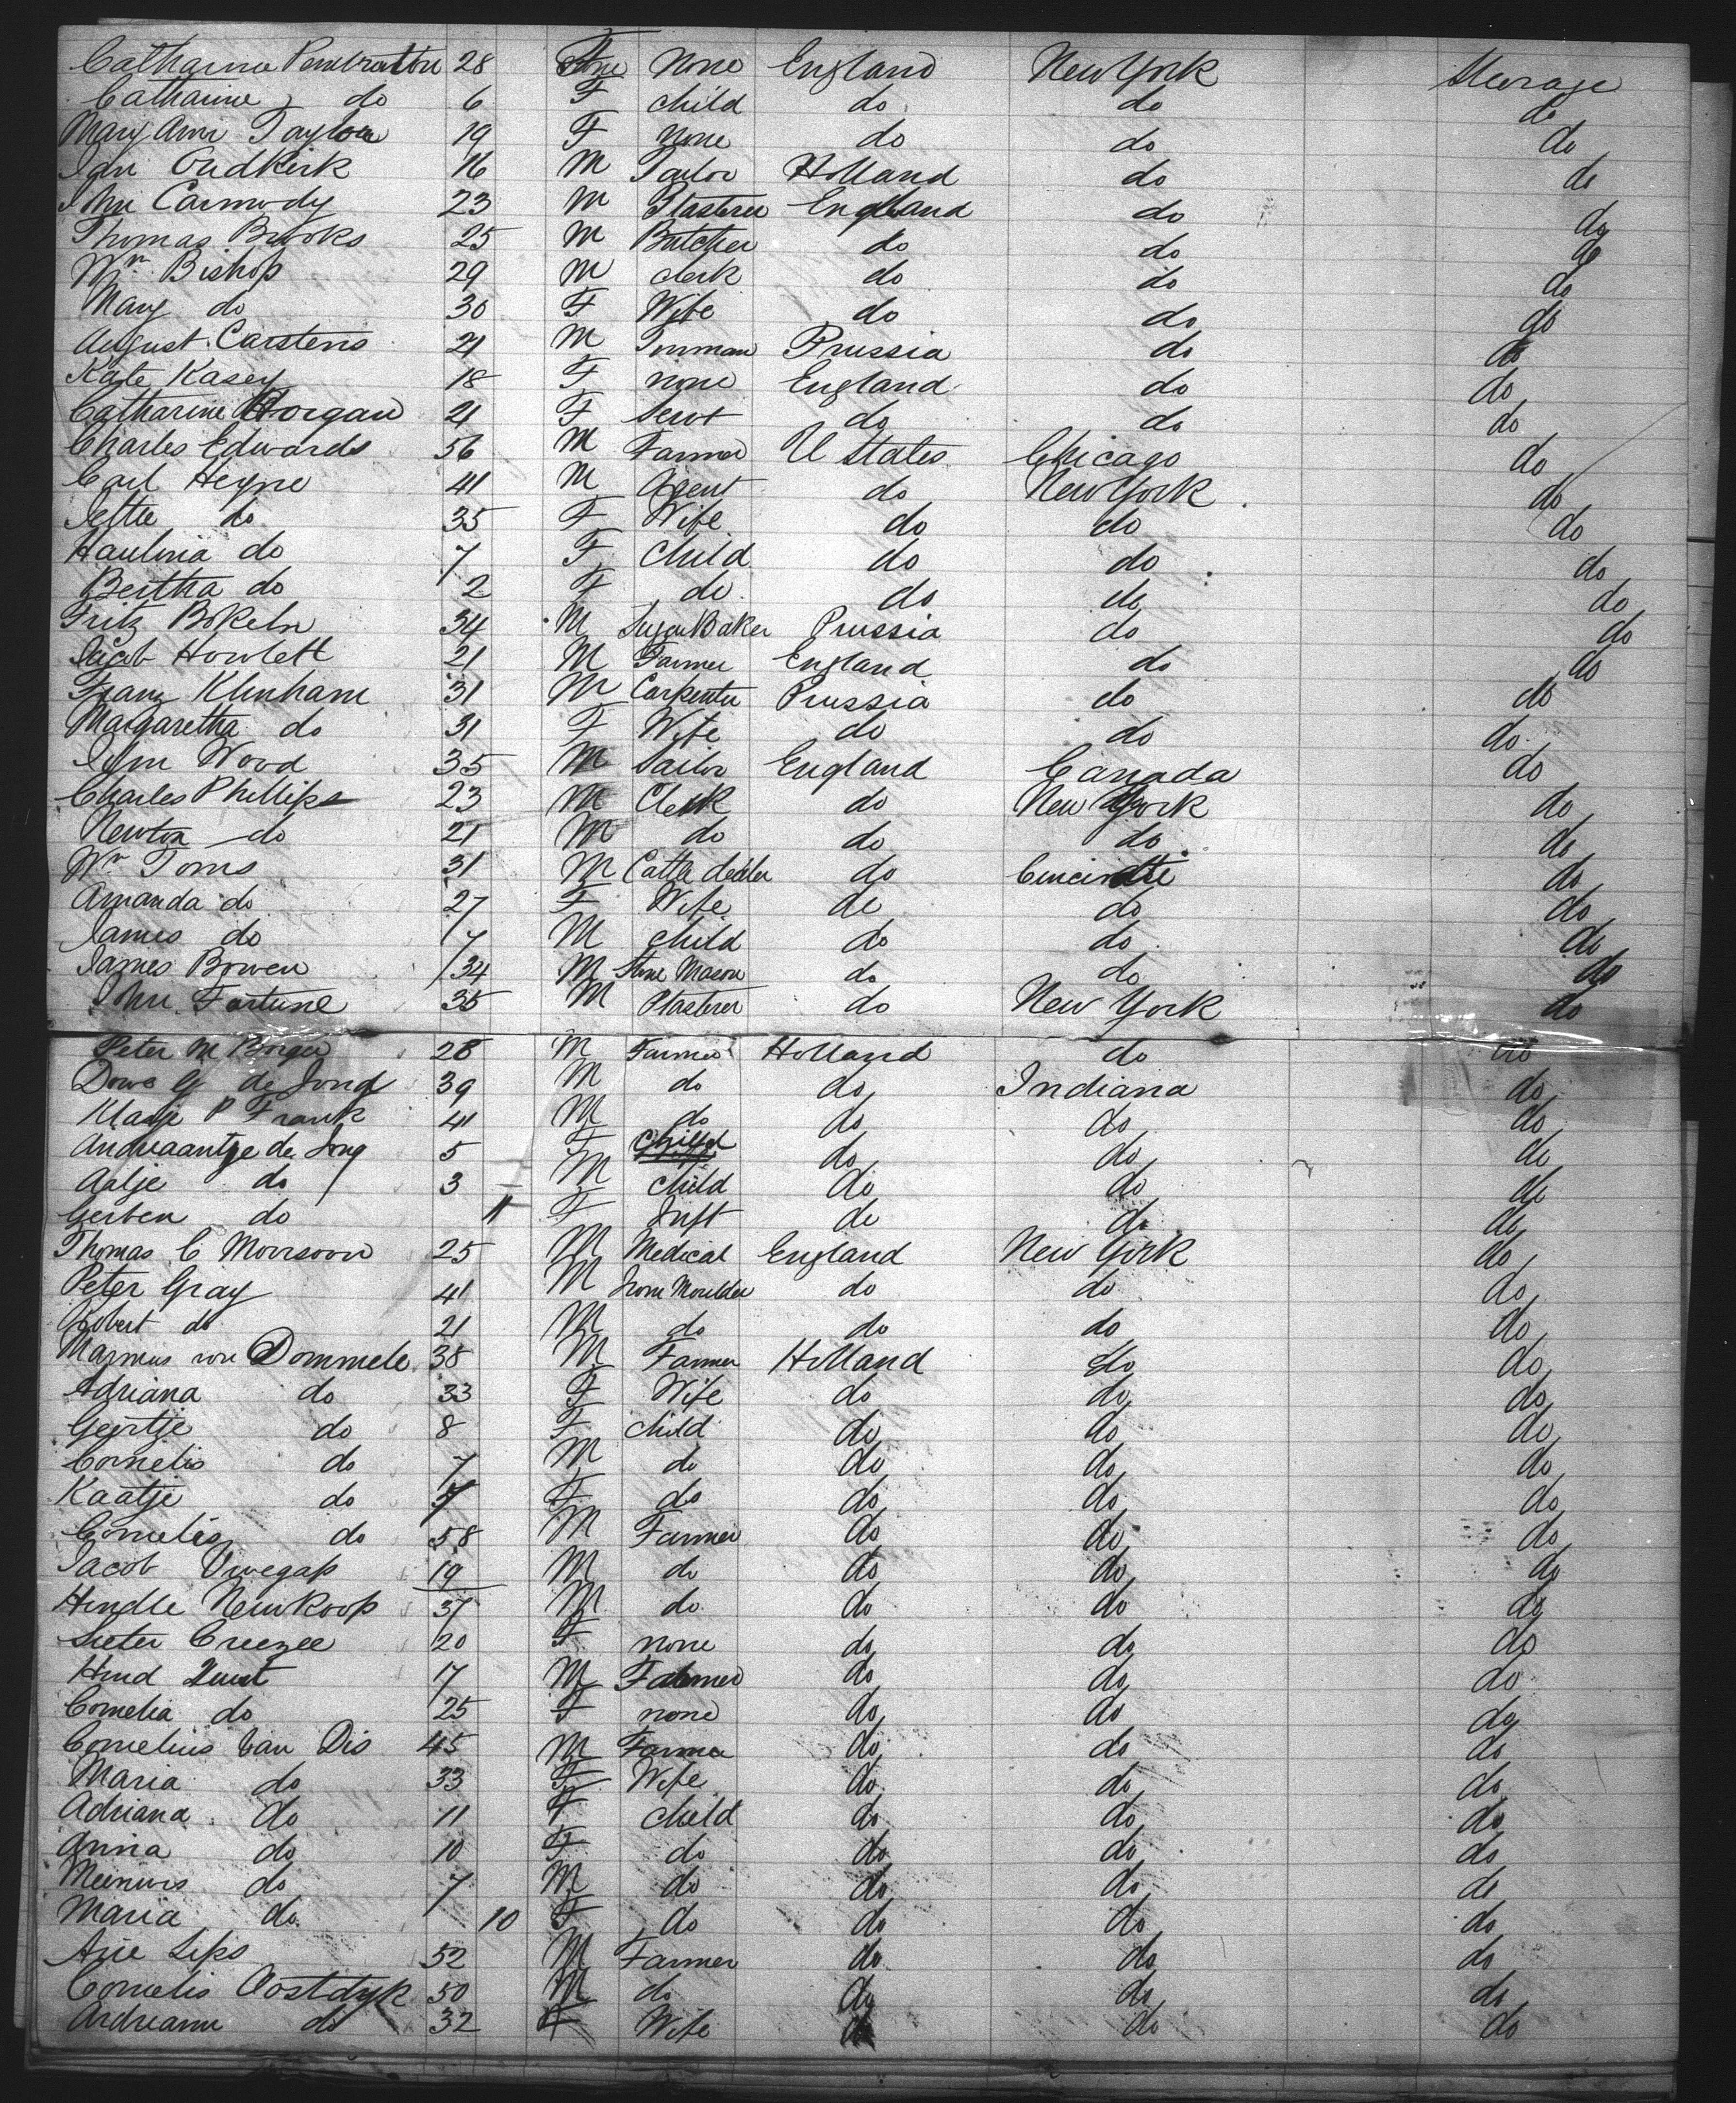 Catharine 28 None England New York Sterage
Catharine do 6 F child do do do
Mary Ann Taylor 19 F none do do do
Jan Oudkirk 16 M Tailor Holland do do
John Carmody 23 M Plasterer England do do
Thomas Brooks 25 M Butcher do do do
Wm Bishop 29 M clerk do do do
Mary do 30 F Wife do do do
August Carstens 21 M Prussia do do
Kate Kasey 18 F none England do do
Catharine Horgan 21 F Servt do do do
Charles Edwards 56 M Farmer U States Chicago do
Carl Heyne 41 M Agent do New York do
Jette do 35 F Wife do do do
Haulina do 7 F Child do do do
Bertha do 2 F do do do do
Fritz 34 M Sugar Baker Prussia do do
Jacob Howlett 21 M Farmer England do do
Franz Klinham 31 M Carpenter Prussia do do
Margaretha do 31 F Wife do do do
John Wood 35 M Sailor England Canada do
Charles Phillips 23 M Clerk do New York do
Newton do 21 M do do do do
Wm Toms 31 M Cattle dealer do do
Amanda do 27 F Wife do do do
James do 7 M child do do do
James Bowen 34 M Stone Mason do do do
John Fortune 35 M Plasterer do New York do
Peter M 28 M Farmer Holland do do
Dowe G de Jong 39 M do do Indiana do
Klaase P Frank 41 M do do do do
Andreaantje de Jong 5 F Child do do do
Aalje do 3 M child do do do
Gerben do 11 F Inft do do do
Thomas C Morrsoon 25 M Medical England New York do
Peter Gray 41 M Iron Moulder do do do
Robert do 21 M do do do do
Marinus von Dommele 38 M Farmer Holland do do
Adriana do 33 F Wife do do do
Geertje do 8 F child do do do
Cornelis do 7 M do do do do
Kaatje do F do do do do
Cornelis do 58 M Farmer do do do
Jacob 19 M do do do do
Hendle Newkoop 37 M do do do do
Creezee 20 F none do do do
Hend 17 M Farmer do do do
Cornelia do 25 F none do do do
Cornelius Van Dis 45 M Farmer do do do
Maria do 33 F Wife do do do
Adriana do 11 F child do do do
Anna do 10 F do do do do
do 7 M do do do do
Maria do 10 F do do do do
Arie Lips 52 M Farmer do do do
Cornelis Oostdyk 50 M do do do do
Ardreanne do 32 F Wife do do do